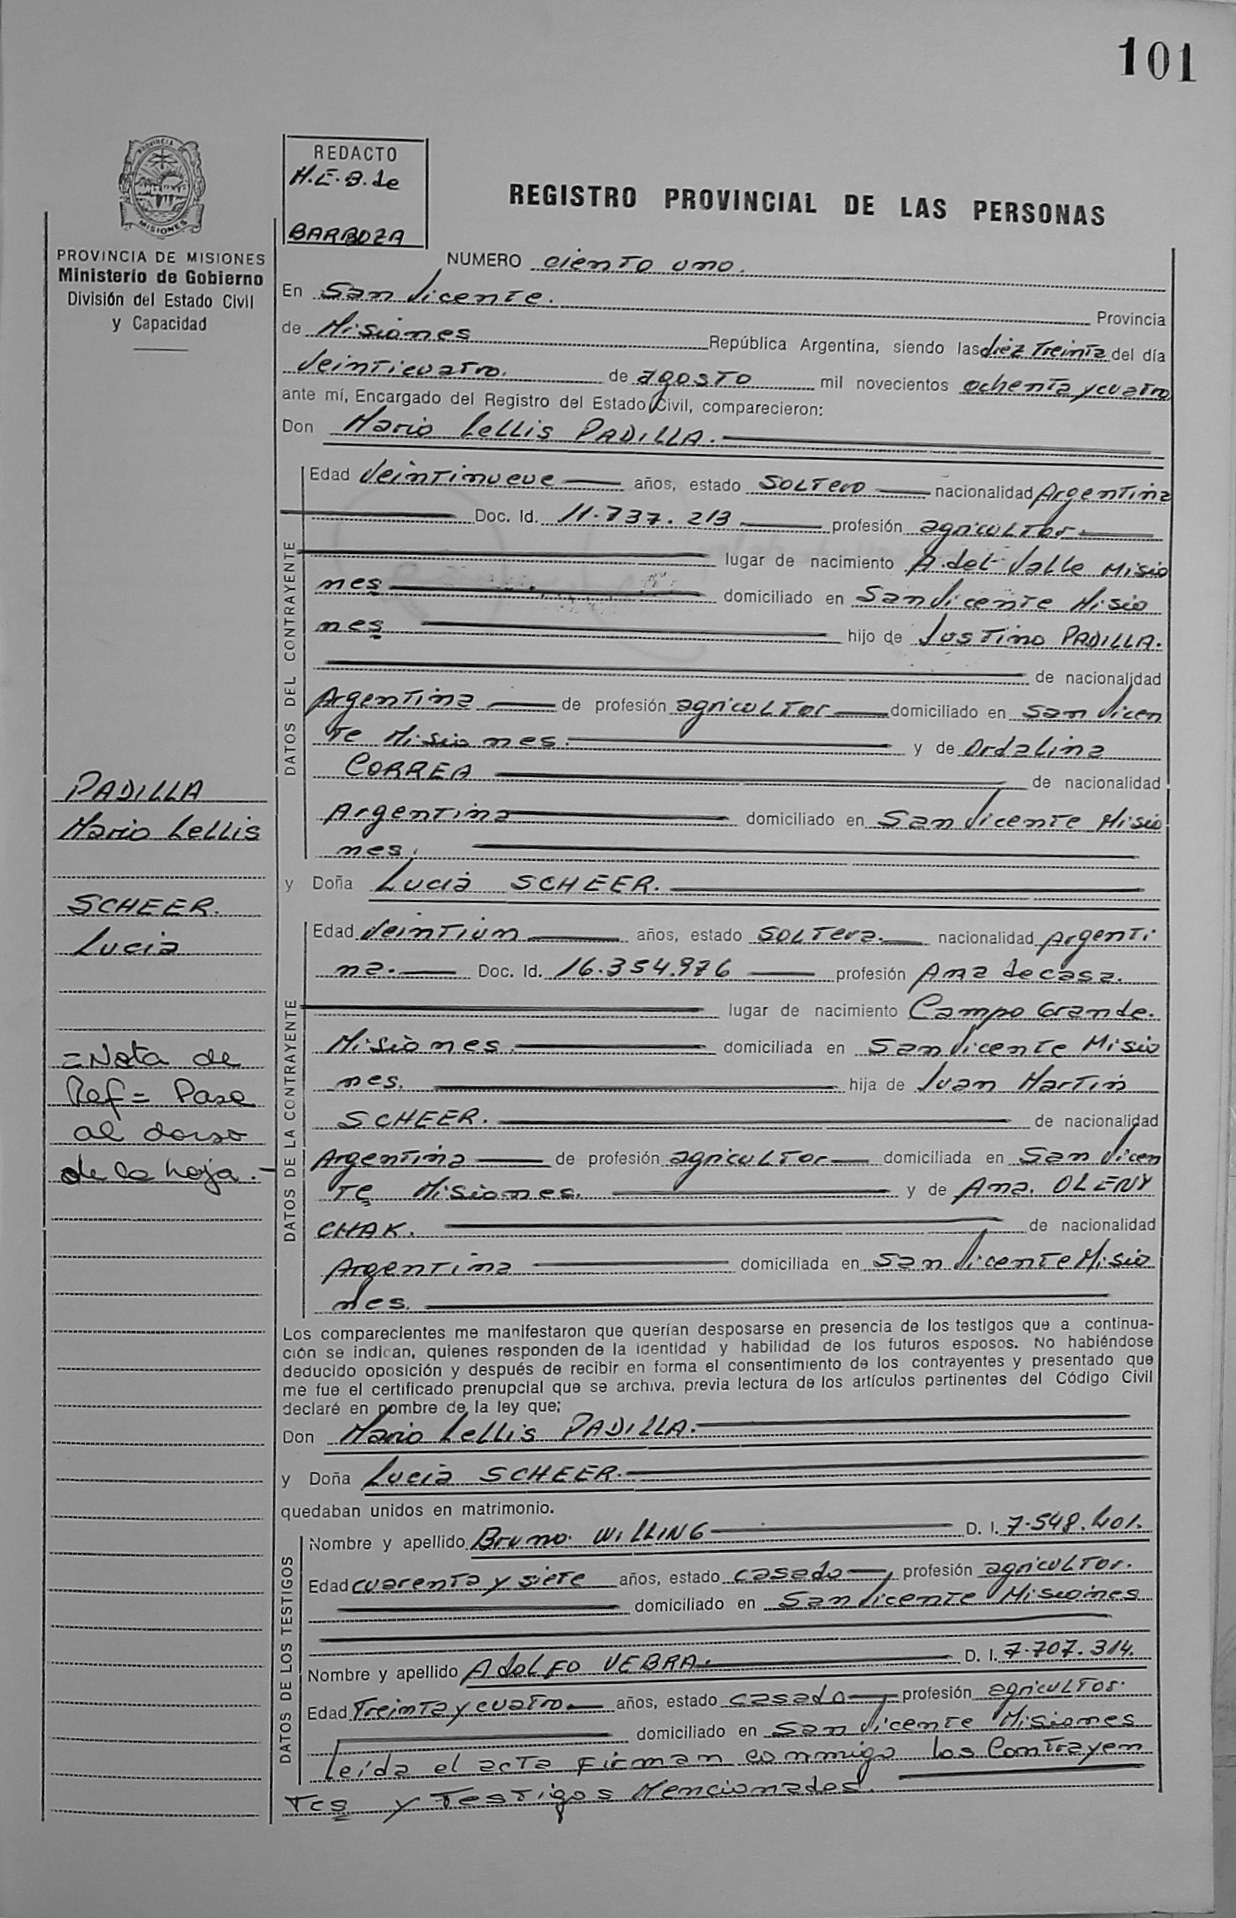 101
REDACTO
H.E.B. de
BARBOZA
PROVINCIA DE MISIONES
Ministerio de Gobierno
División del Estado Civil
y Capacidad
REGISTRO PROVINCIAL DE LAS PERSONAS
NUMERO ciento uno.
En San Vicente. Provincia
de Misiones República Argentina, siendo las diez Treinta del día
Veinticuatro. de agosto mil novecientos ochenta y cuatro
ante mí, Encargado del Registro del Estado Civil, comparecieron:
Don Mario Lellis PADILLA.
DATOS DEL CONTRAYENTE
Edad Veintinueve años, estado SOLTERO nacionalidad Argentina
Doc. Id. 11.737.213 profesión agricultor
lugar de nacimiento A. del Valle Misio
nes domiciliado en San Vicente Misio
nes hijo de Justino PADILLA.
de nacionalidad
Argentina de profesión agricultor domiciliado en San Vicen
te Misiones. y de Ordalina
CORREA de nacionalidad
Argentina domiciliado en San Vicente Misio
nes.
y Doña Lucia SCHEER.
DATOS DE LA CONTRAYENTE
Edad Veintiún años, estado SOLTERA. nacionalidad Argenti
na. Doc. Id. 16.354.976 profesión Ama de casa.
lugar de nacimiento Campo Grande.
Misiones. domiciliada en San Vicente Misio
nes. hija de Juan Martin
SCHEER. de nacionalidad
Argentina de profesión agricultor domiciliada en San Vicen
te Misiones. y de Ana. OLENY
CHAK. de nacionalidad
Argentina domiciliada en San Vicente Misio
nes.
Los comparecientes me manifestaron que querían desposarse en presencia de los testigos que a continua-
ción se indican, quienes responden de la identidad y habilidad de los futuros esposos. No habiéndose
deducido oposición y después de recibir en forma el consentimiento de los contrayentes y presentado que
me fue el certificado prenupcial que se archiva, previa lectura de los artículos pertinentes del Código Civil
declaré en nombre de la ley que;
Don Mario Lellis PADILLA.
y Doña Lucia SCHEER.
quedaban unidos en matrimonio.
DATOS DE LOS TESTIGOS
Nombre y apellido Bruno WILLING D. I. 7.548.401.
Edad cuarenta y siete años, estado casado profesión agricultor.
domiciliado en San Vicente Misiones
Nombre y apellido ADOLFO VEBRA. D. I. 7.707.314.
Edad Treinta y cuatro años, estado casado profesión agricultor.
domiciliado en San Vicente Misiones
Leída el acta firman conmigo los Contrayen
tes y Testigos Mencionados.
PADILLA
Mario Lellis
SCHEER.
Lucia
=Nota de
Ref= Pasa
al dorso
de la hoja.-